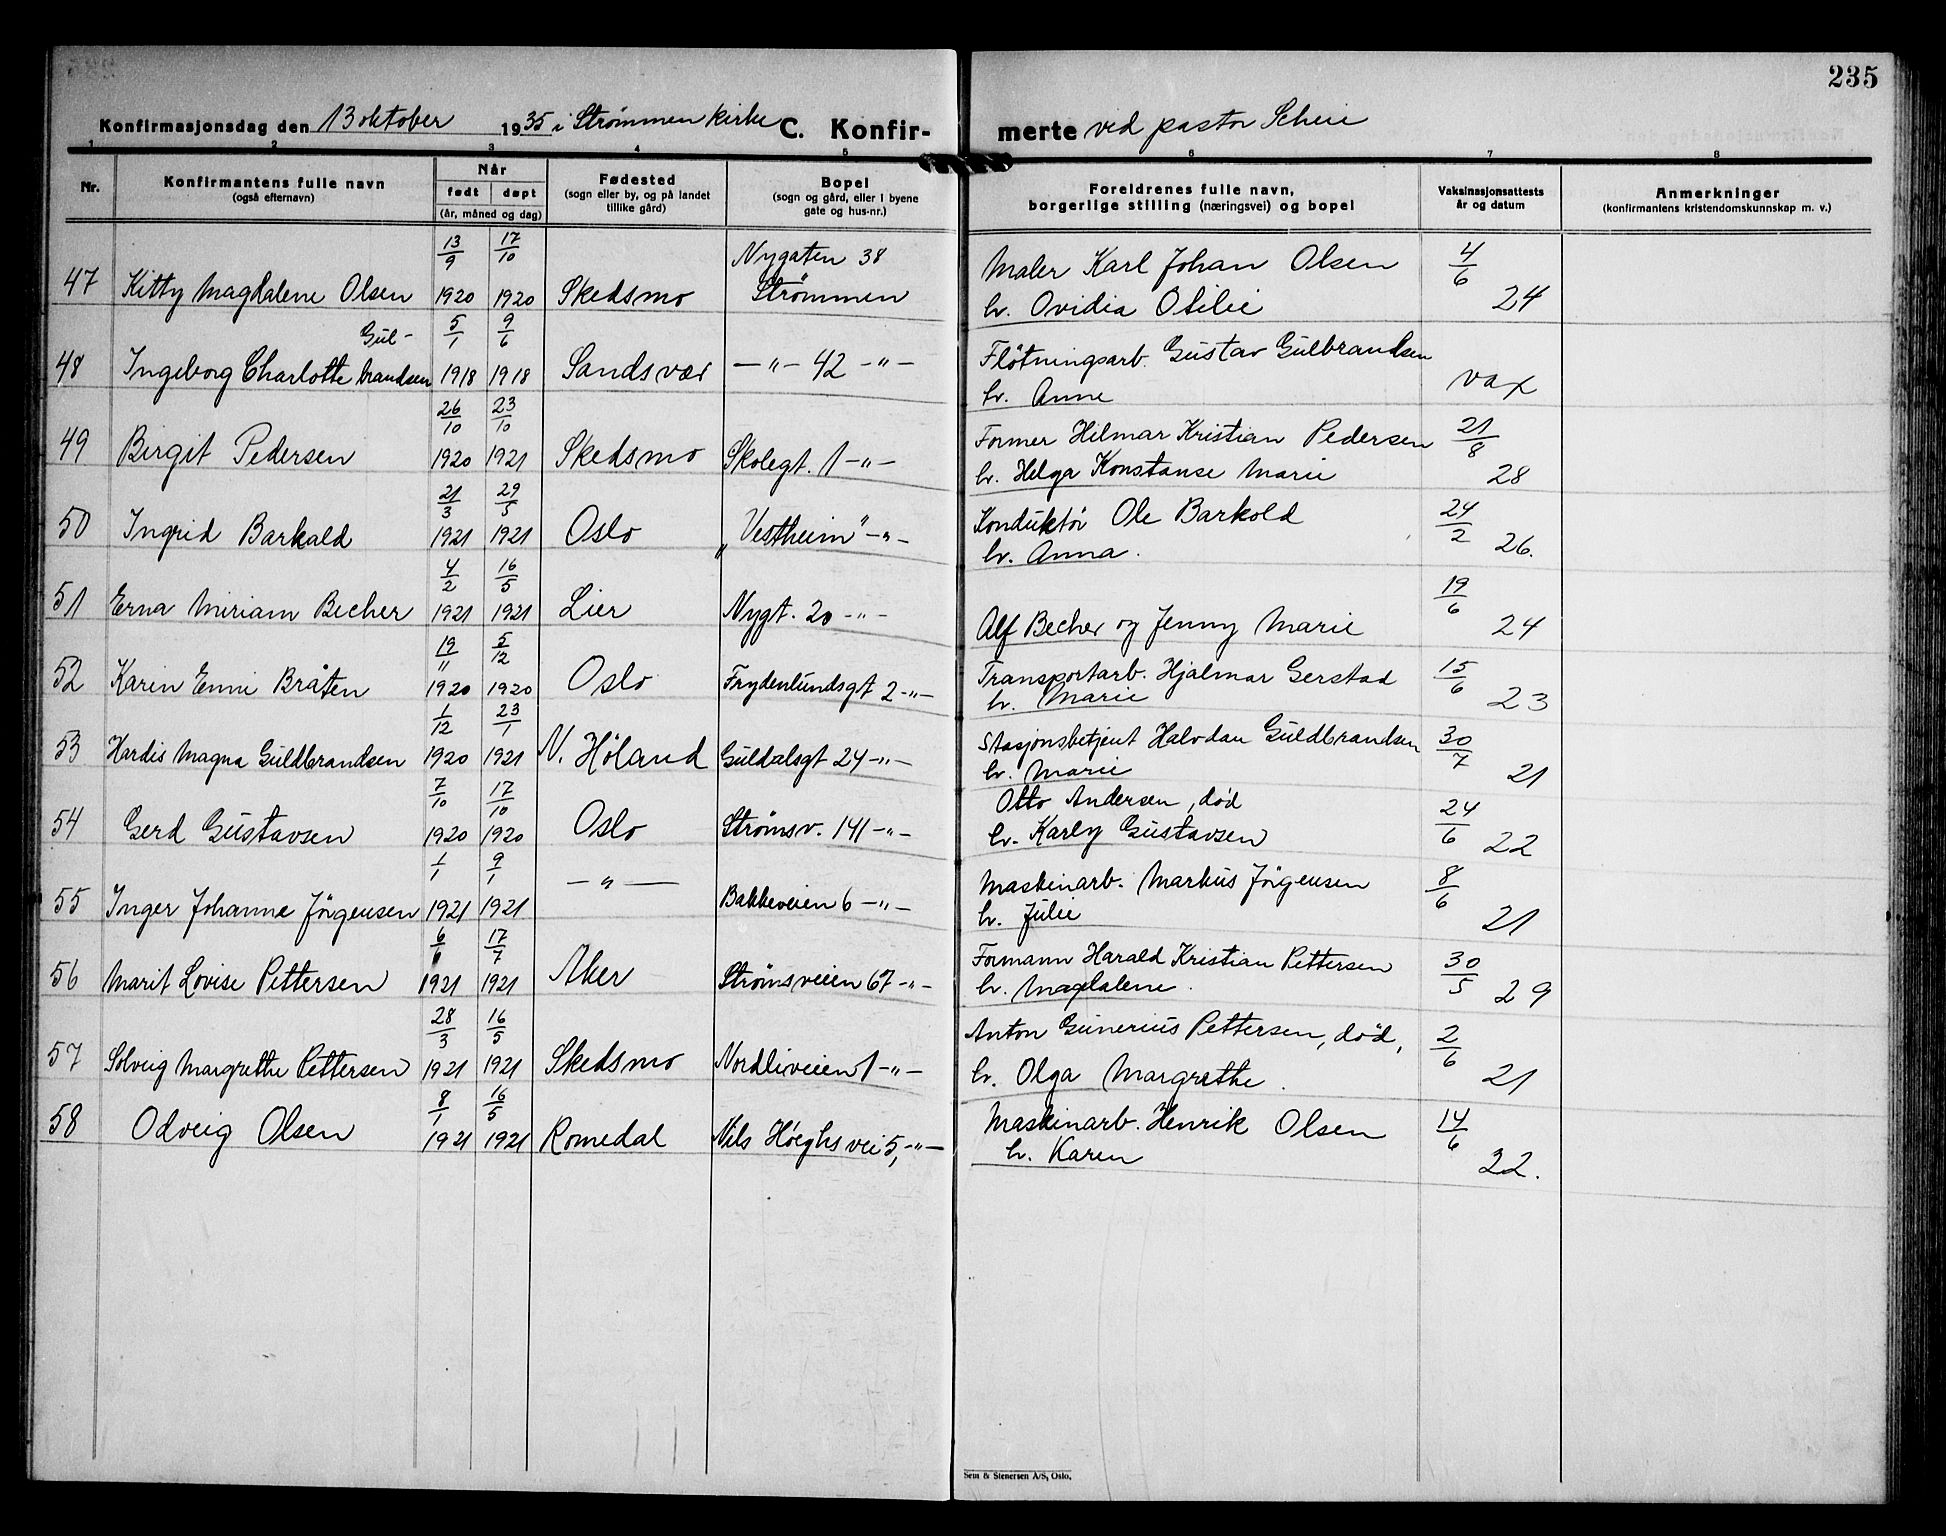 235
Konfirmasjonsdag den 13 oktober 1935 i Strømmen kirke C. Konfir-merte ved pastor Scheie
1 2 3 4 5 6 7 8
Nr. Konfirmantens fulle navn (også efternavn) Når født døpt (år, måned og dag) Fødested (sogn eller by, og på landet tillike gård) Bopel (sogn og gård, eller i byene gate og hus-nr.) Foreldrenes fulle navn, borgerlige stilling (næringsvei) og bopel Vaksinasjonsattests år og datum Anmerkninger (konfirmantens kristendomskunnskap m. v.)
13/9 17/10 Nygaten 38 Maler Karl Johan Olsen 4/6
47 Kitty Magdalene Olsen 1920 1920 Skedsmo Strømmen h. Ovidia Otilie 24
Gul- 5/1 9/6 Fløtningsarb. Gustav Gulbrandsen
48 Ingeborg Charlotte brandsen 1918 1918 Sandsvær —"— 42 —"— h. Anne vax
26/10 23/10 Former Hilmar Kristian Pedersen 21/8
49 Birgit Pedersen 1920 1921 Skedsmo Skolegt. 1 —"— h. Helga Konstanse Marie 28
21/3 29/5 Konduktør Ole Barkold 24/2
50 Ingrid Barkald 1921 1921 Oslo „Vestheim" —"— h. Anna. 26.
4/2 16/5 19/6
51 Erna Miriam Becher 1921 1921 Lier Nygt. 20 —"— Alf Becher og Jenny Marie 24
19/11 5/12 Transportarb. Hjalmar Gerstad 15/6
52 Karin Enni Bråten 1920 1920 Oslo Frydenlundsgt 2 —"— h. Marie 23
1/12 23/1 Stasjonsbetjent Halvdan Guldbrandsen 30/7
53 Hardis Magna Guldbrandsen 1920 1921 N. Høland Guldalsgt 24 —"— h. Marie 21
7/10 17/10 Otto Andersen, død 24/6
54 Gerd Gustavsen 1920 1920 Oslo Strømsv. 141 —"— h. Karly Gustavsen 22
1/1 9/1 —"— Maskinarb. Markus Jörgensen 8/6
55 Inger Johanne Jörgensen 1921 1921 Bakkeveien 6 —"— h. Julie 21
6/6 17/7 Formann Harald Kristian Pettersen 30/5
56 Marit Lovise Pettersen 1921 1921 Aker Strømsveien 67 —"— h. Magdalene. 29
28/3 16/5 Anton Gunerius Pettersen, død, 2/6
57 Solveig Margrethe Pettersen 1921 1921 Skedsmo Nordliveien 1 —"— h. Olga Margrethe. 21
8/1 16/5 Maskinarb. Henrik Olsen 14/6
58 Odveig Olsen 1921 1921 Romedal Nils Høeghs vei 5, —"— h. Karen 22.
Sem & Stenersen A/S, Oslo.